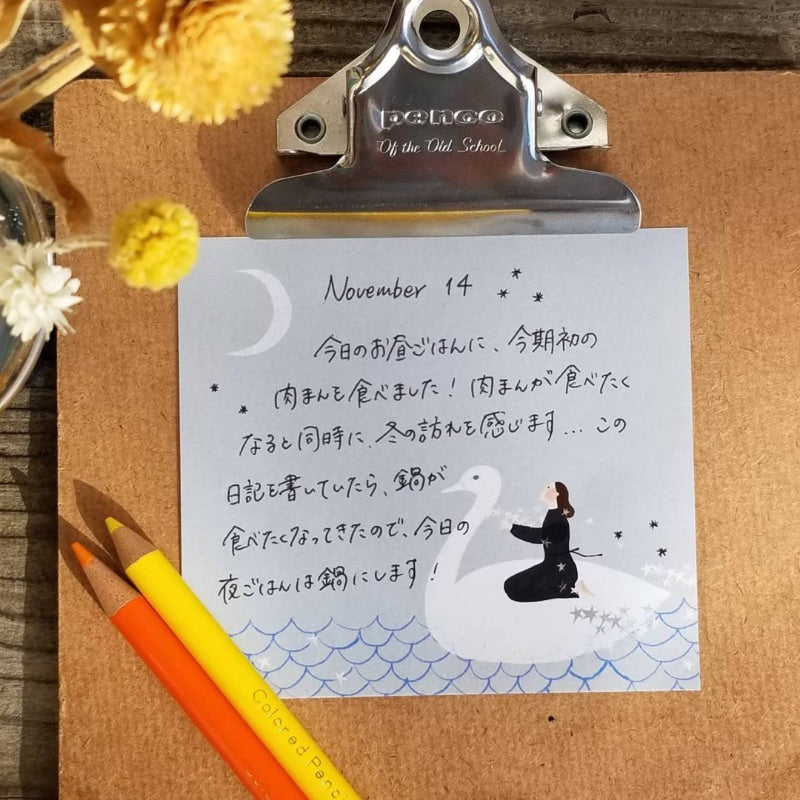 penco
Of the Old School
November 14
今日のお昼ごはんに、今期初の
肉まんを食べました！肉まんが食べたく
なると同時に、冬の訪れを感じます...この
日記を書いていたら、鍋が
食べたくなってきたので、今日の
夜ごはんは鍋にします！
Colored Penci